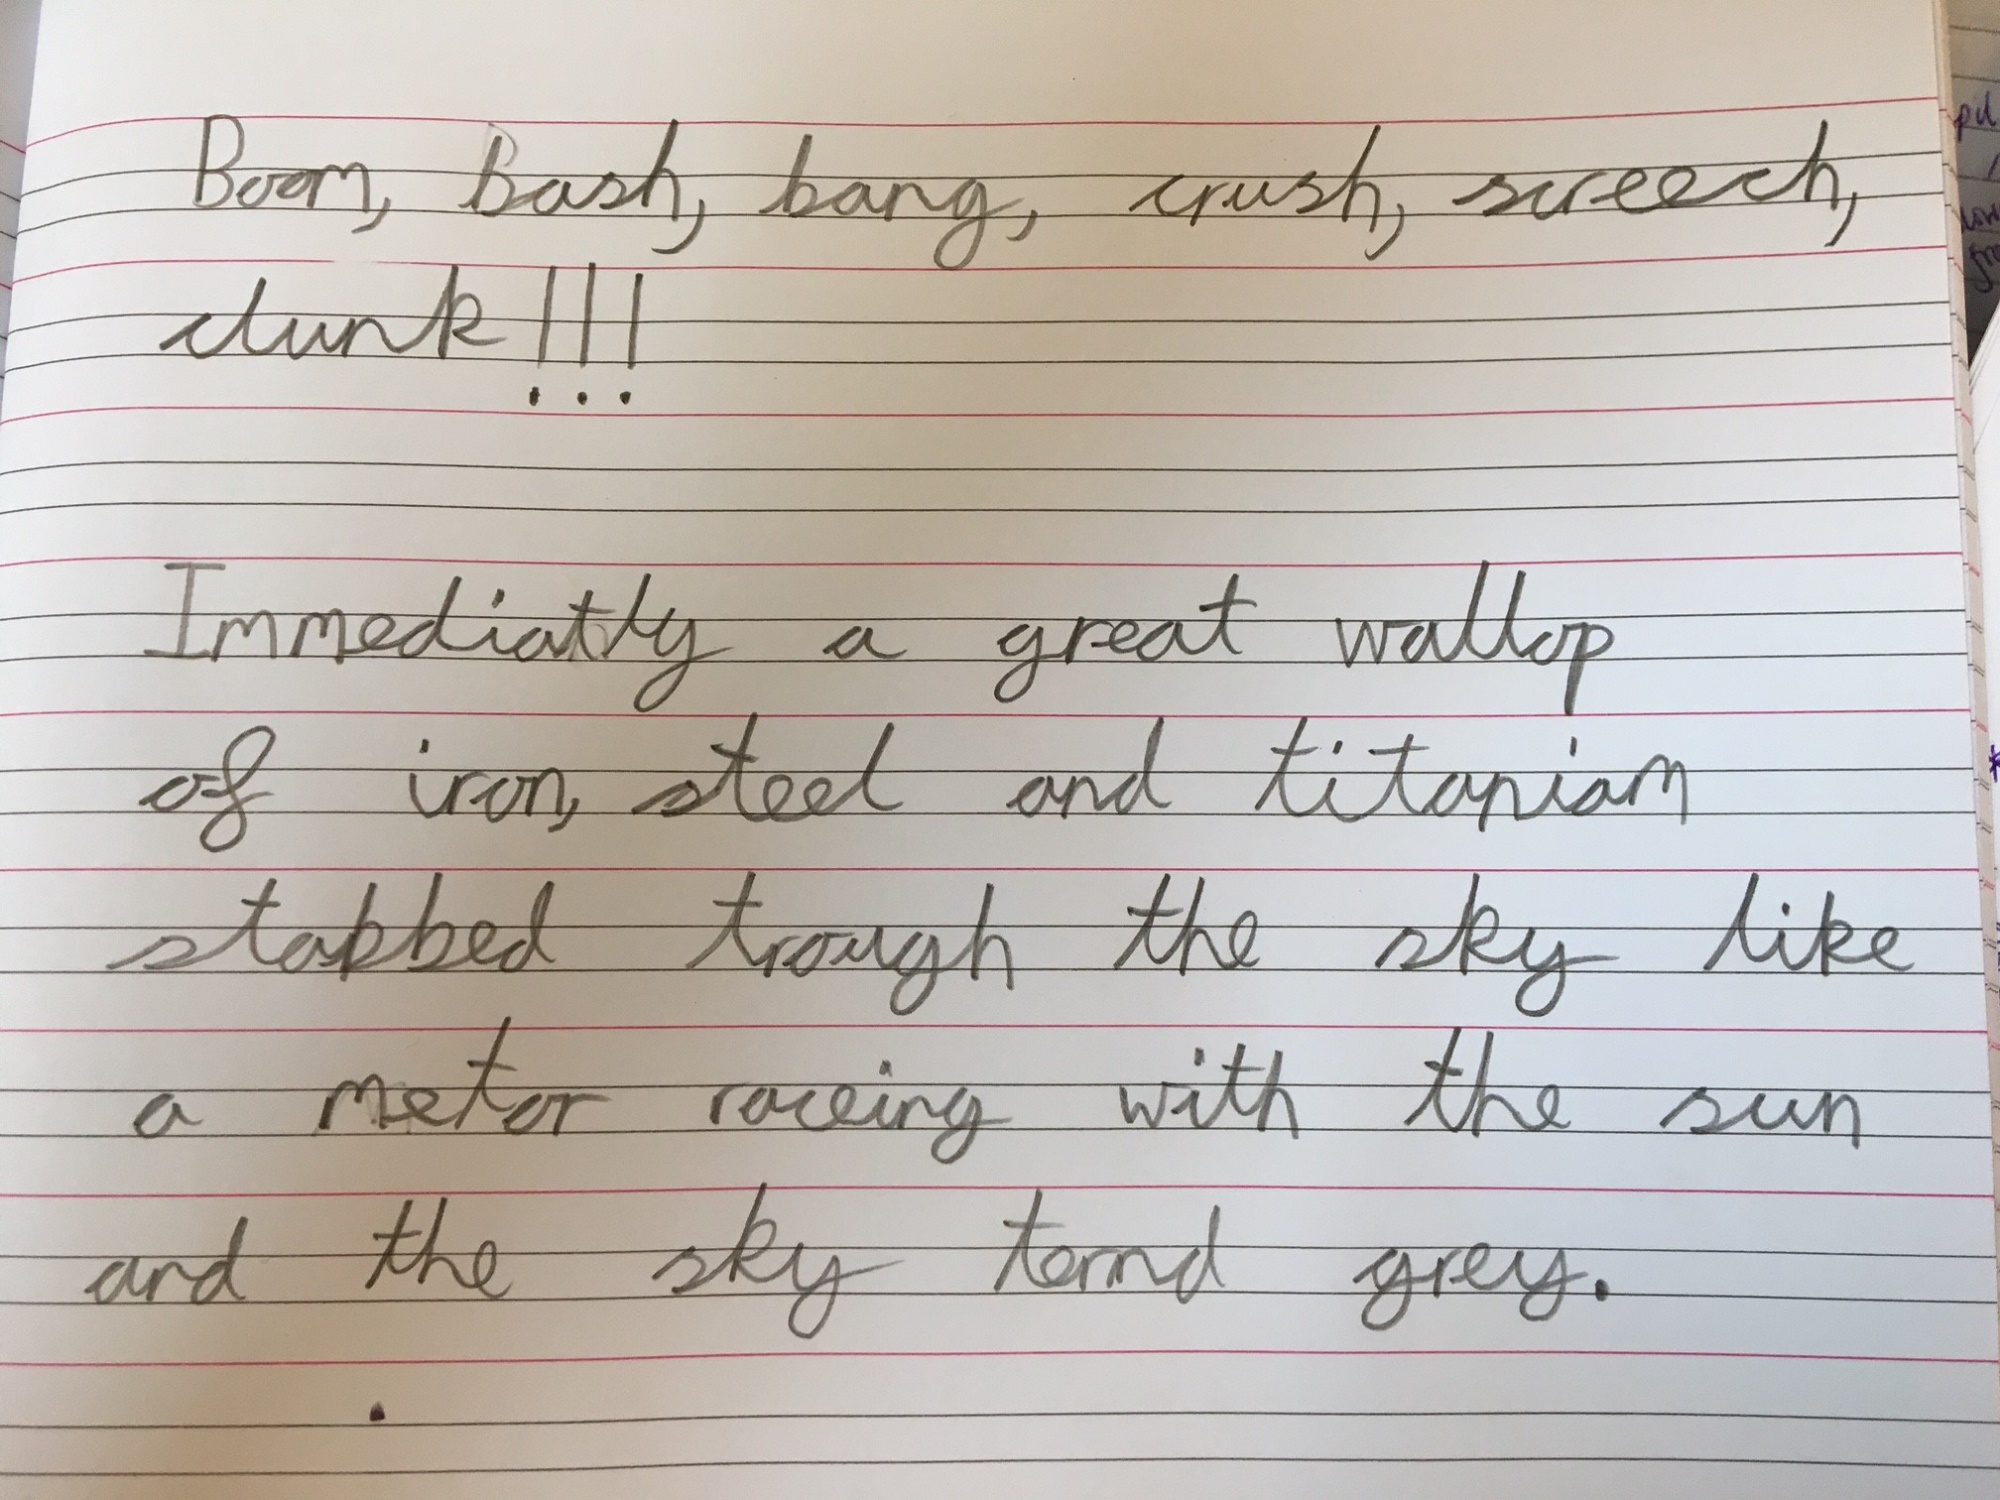 Boom, Bash, bang, crush, screech,
clunk!!!
Immediatly a great wallop
of iron, steel and titaniam
stabbed trough the sky like
a metor raceing with the sun
and the sky ternd grey.